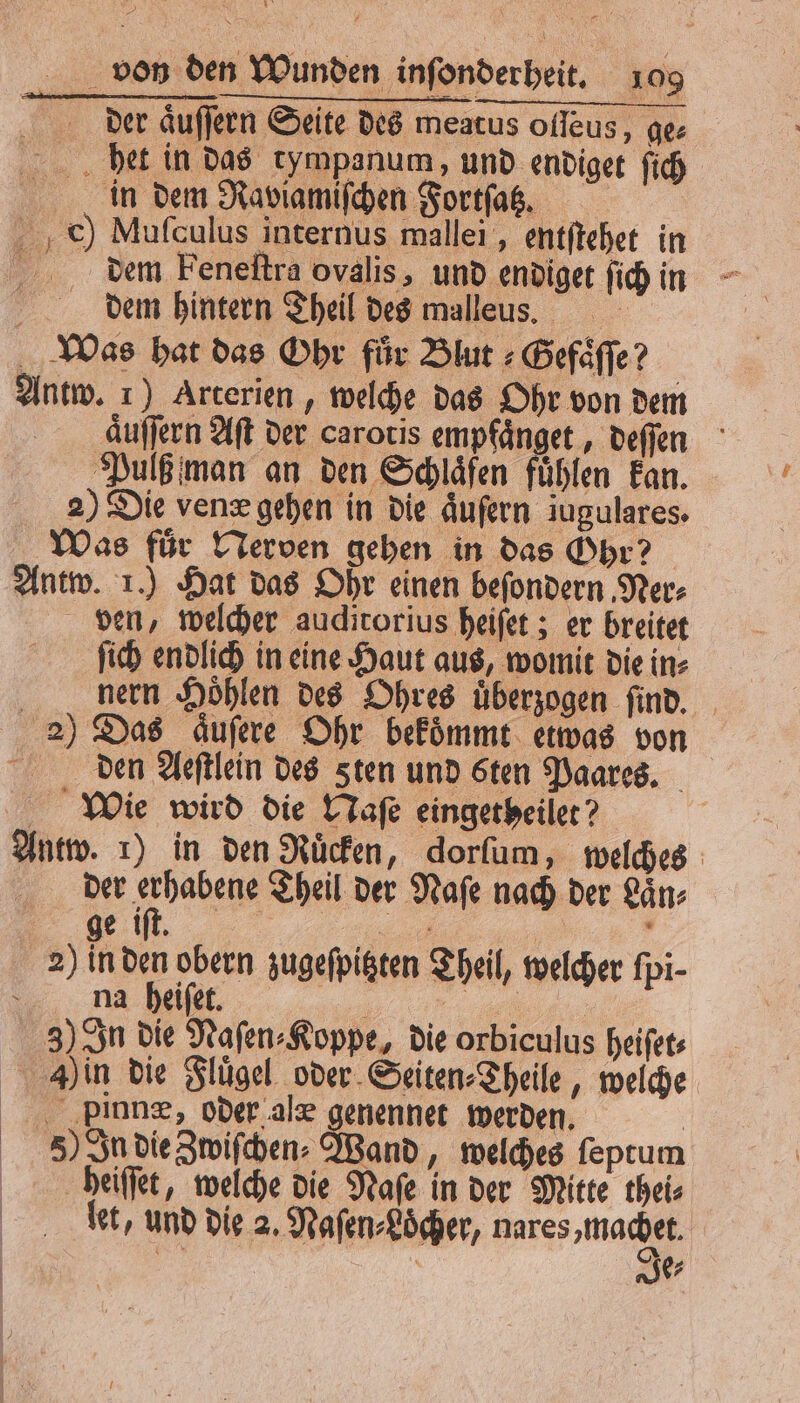 von den Wunden inſonderheit. 109
der aͤuſſern Seite des meatus oſſeus, ge⸗
het in das tympanum, und endiget ſich
in dem Raviamiſchen Fortſatz.
c) Muſculus internus mallei, entſtehet in
dem Feneſtra ovalis, und endiget ſich in
dem hintern Theil des malleus.
Was hat das Ohr fuͤr Blut⸗Gefaͤſſe?
Antw. 1) Arterien, welche das Ohr von dem
aͤuſſern Aſt der carotis empfaͤnget, deſſen
Pulß man an den Schlaͤfen fuͤhlen kan.
2) Die venæ gehen in die aͤuſern iugulares.
Was fuͤr Nerven gehen in das Ohr?
Antw. 1.) Hat das Ohr einen beſondern Ner⸗
ven, welcher auditorius heiſet; er breitet
ſich endlich in eine Haut aus, womit die in⸗
nern Hoͤhlen des Ohres uͤberzogen ſind.
2) Das aͤuſere Ohr bekoͤmmt etwas von
den Aeſtlein des 5ten und 6ten Paares.
Wie wird die Naſe eingetheilet?
Antw. 1) in den Ruͤcken, dorſum, welches
der erhabene Theil der Naſe nach der Laͤn⸗
ge iſt.
2) in den obern zugeſpitzten Theil, welcher ſpi-
na heiſet.
3) In die Naſen⸗Koppe, die orbiculus heiſet⸗
4) in die Fluͤgel oder Seiten⸗Theile, welche
pinnæ, oder alæ genennet werden.
5) In die Zwiſchen⸗Wand, welches ſeptum
heiſſet, welche die Naſe in der Mitte thei⸗
let, und die 2. Naſen⸗Loͤcher, nares, machet.
Je⸗